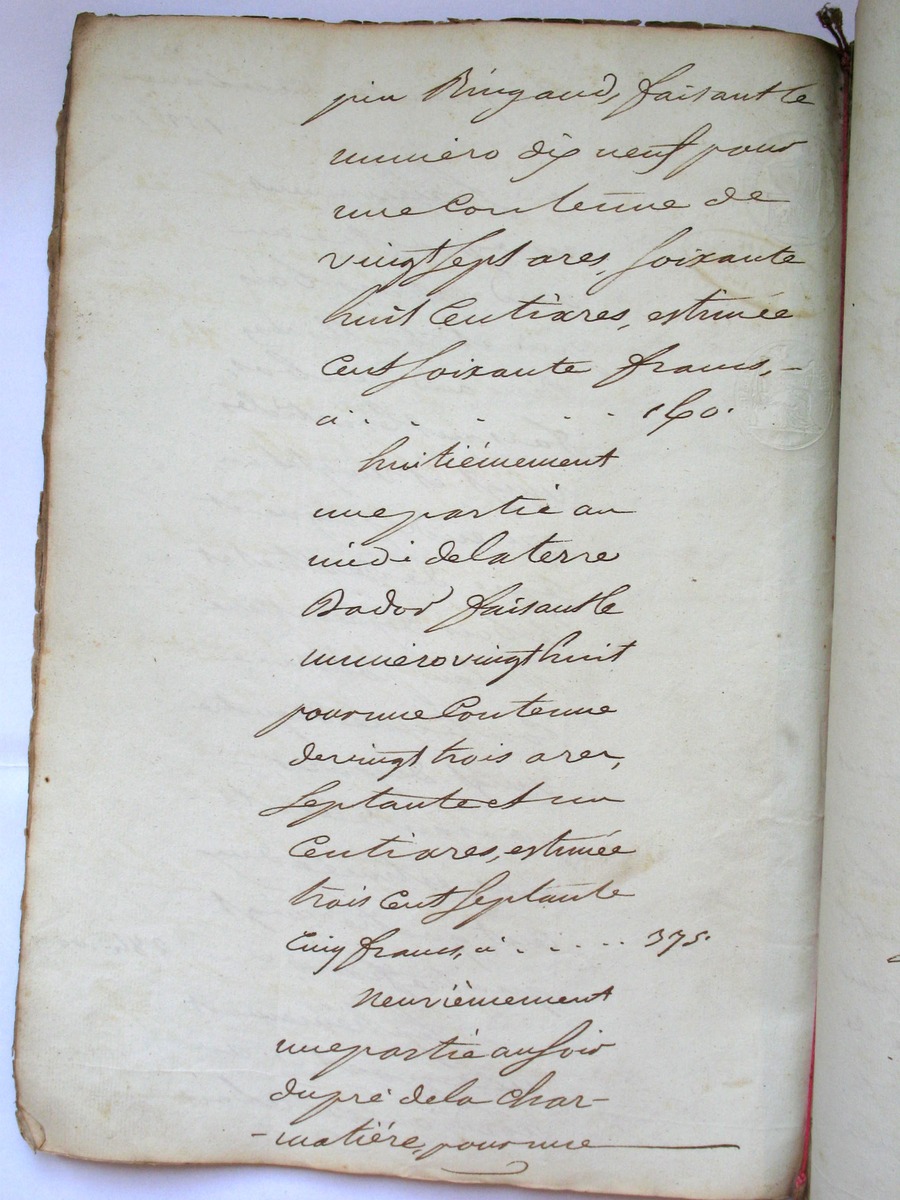 pin Bringaud, faisant le
numéro dix neuf pour
une Contenue de
vingt sept ares, soixante
huit Centiares, estimée
Cent soixante francs, -
ci . . . . . 160.
huitiémement
une partie au
midi de la terre
Bador faisant le
numéro vingt huit
pour une Contenue
de vingt trois ares,
septante et un
Centiares, estimée
trois Cent septante
Cinq francs, ci . . . . . 375.
Neuvièmement
une partie au soir
du pré de la Char-
-matiére, pour une